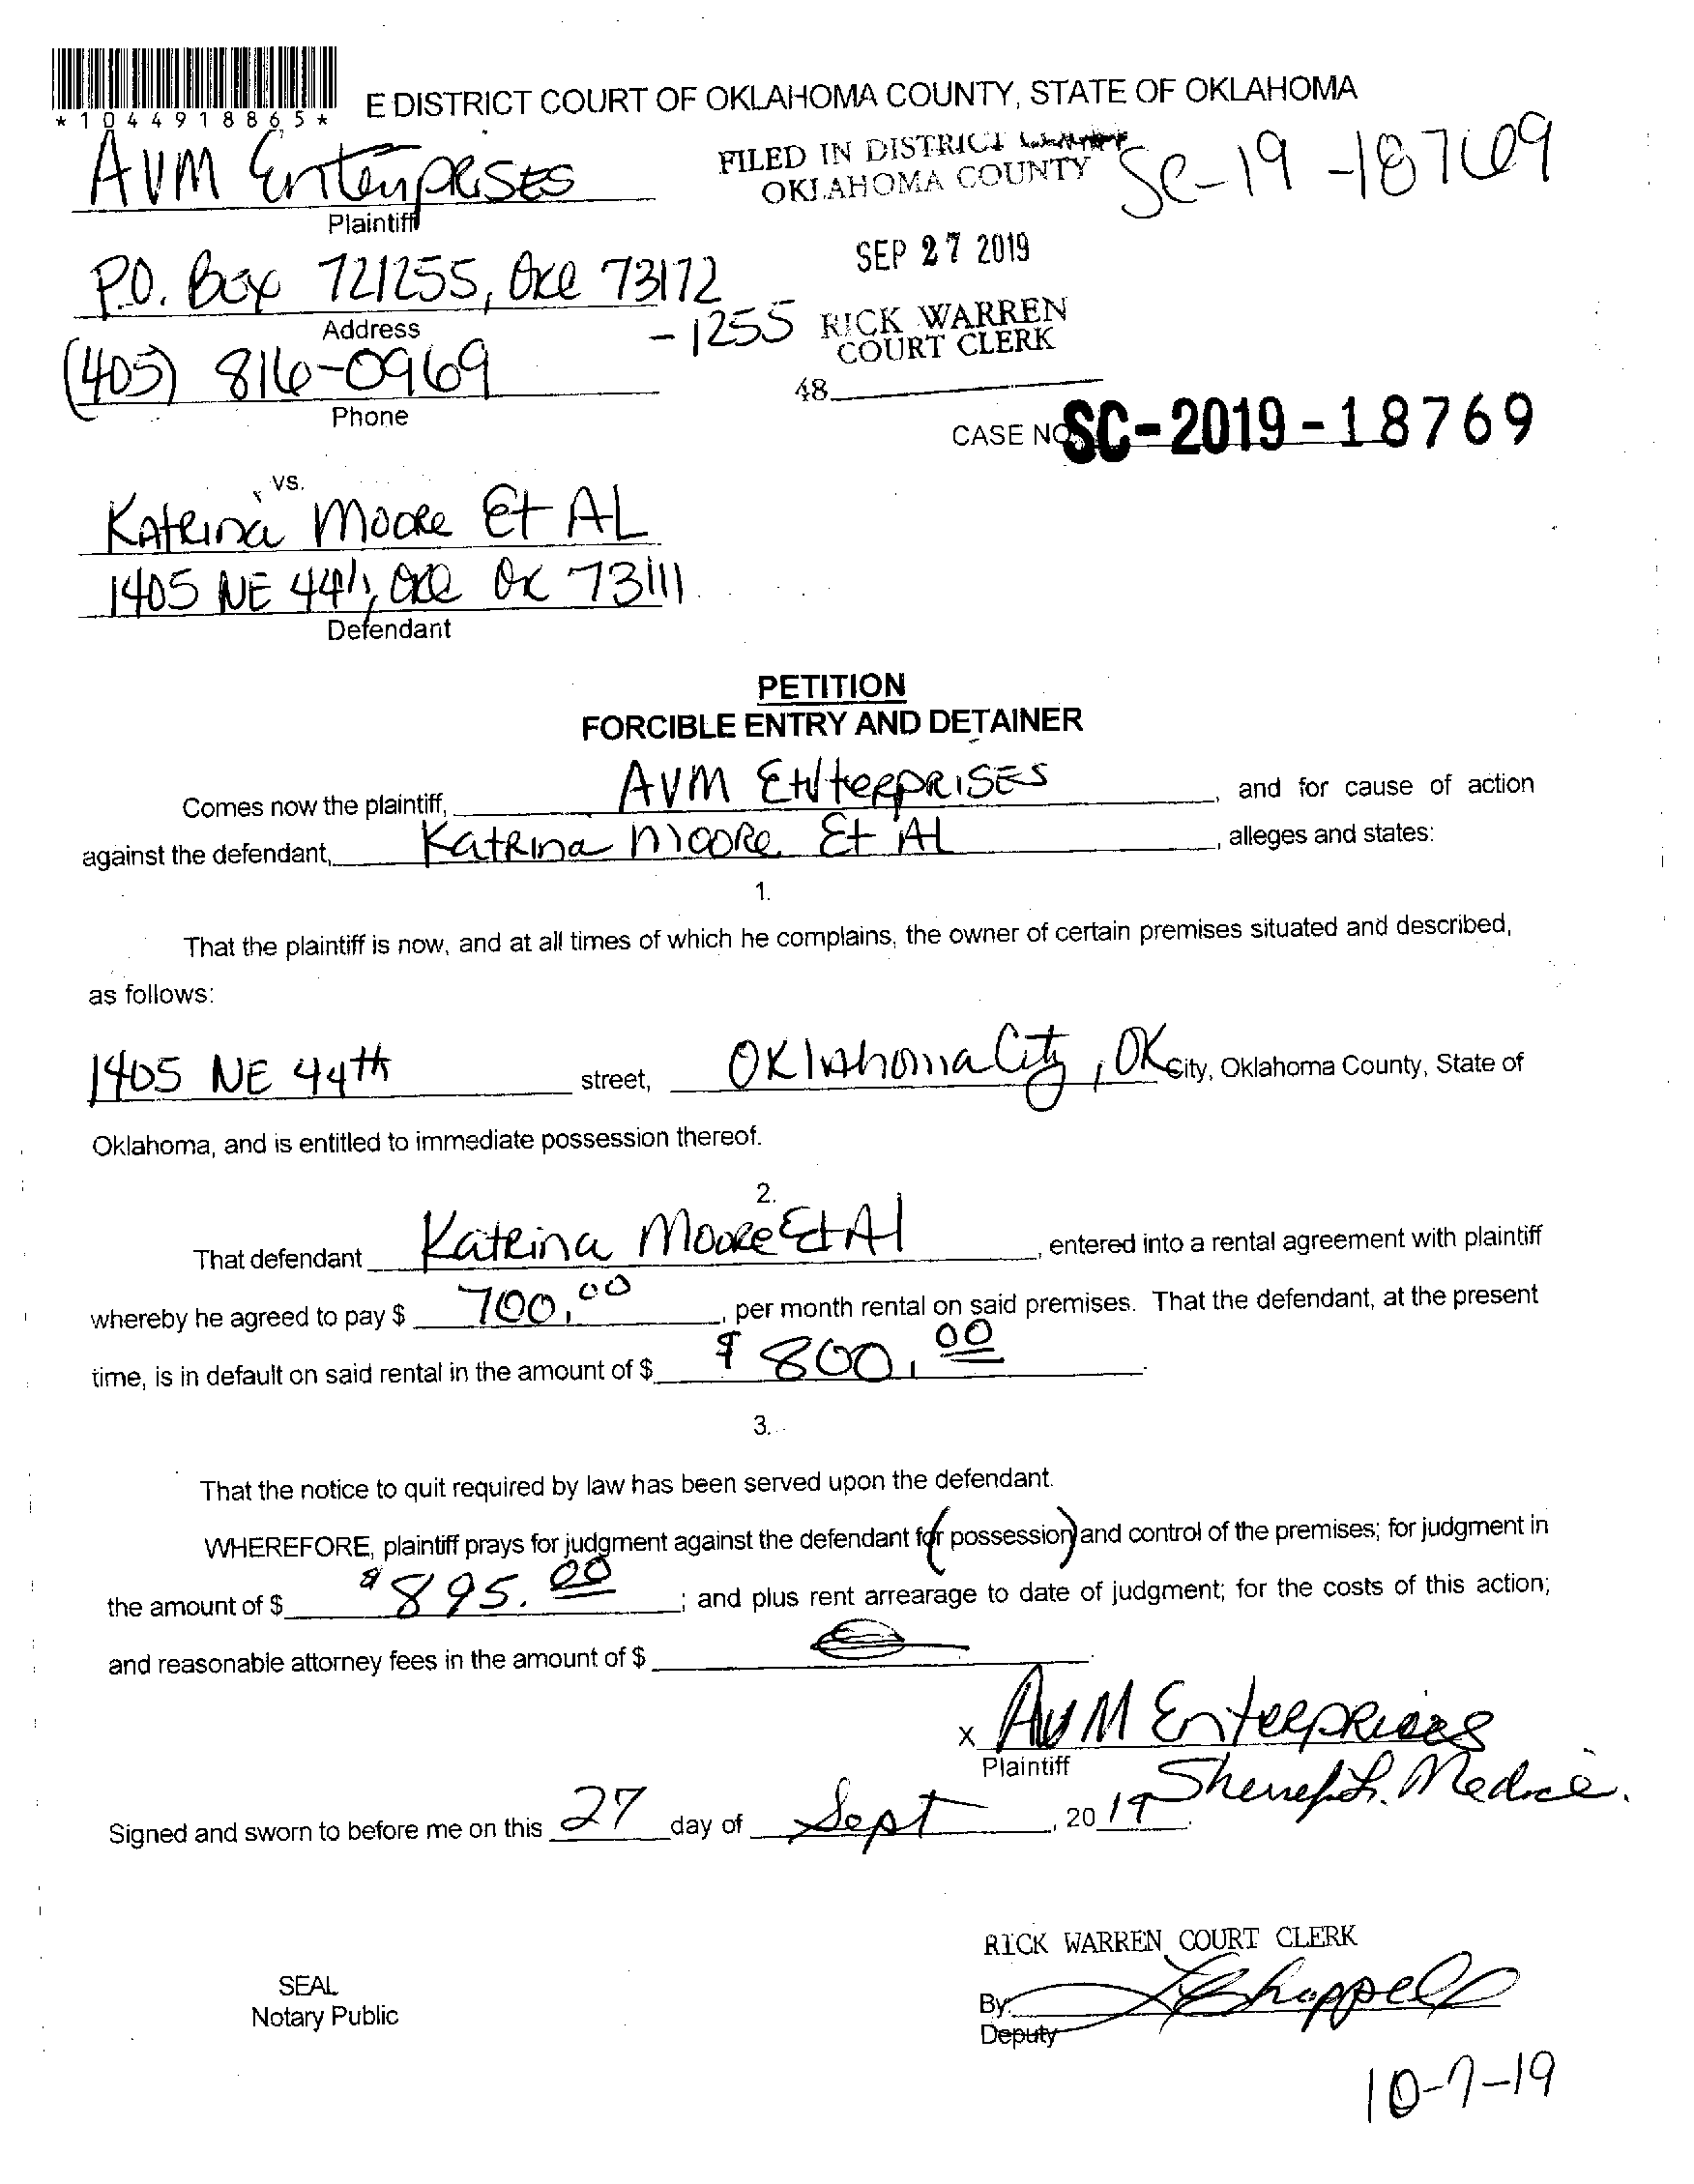 *1044918865*
E DISTRICT COURT OF OKLAHOMA COUNTY, STATE OF OKLAHOMA
AVM Enterprises
Plaintiff
FILED IN DISTRICT
OKLAHOMA COUNTY
SC-19-18769
SEP 27 2019
P.O. Box 721255, OKC 73172
-1255
Address
RICK WARREN
COURT CLERK
(405) 816-0969
Phone
48
CASE NO. SC-2019-18769
vs.
Katrina Moore Et AL
1405 NE 44th, OKC OK 73111
Defendant
PETITION
FORCIBLE ENTRY AND DETAINER
Comes now the plaintiff, AVM ENterpRISES, and for cause of action
against the defendant, Katrina Moore Et Al, alleges and states:
1.
That the plaintiff is now, and at all times of which he complains, the owner of certain premises situated and described,
as follows:
1405 NE 44th street, Oklahoma City, OK City, Oklahoma County, State of
Oklahoma, and is entitled to immediate possession thereof.
2.
That defendant Katrina Moore Et Al, entered into a rental agreement with plaintiff
whereby he agreed to pay $ 700.00, per month rental on said premises. That the defendant, at the present
time, is in default on said rental in the amount of $ $ 800.00.
3.
That the notice to quit required by law has been served upon the defendant.
WHEREFORE, plaintiff prays for judgment against the defendant for (possession) and control of the premises; for judgment in
the amount of $ $895.00; and plus rent arrearage to date of judgment; for the costs of this action;
and reasonable attorney fees in the amount of $
x AVM Enterprises
Plaintiff
Signed and sworn to before me on this 27 day of Sept, 2019.
RICK WARREN COURT CLERK
SEAL
Notary Public
By: Chappell
Deputy
10-7-19